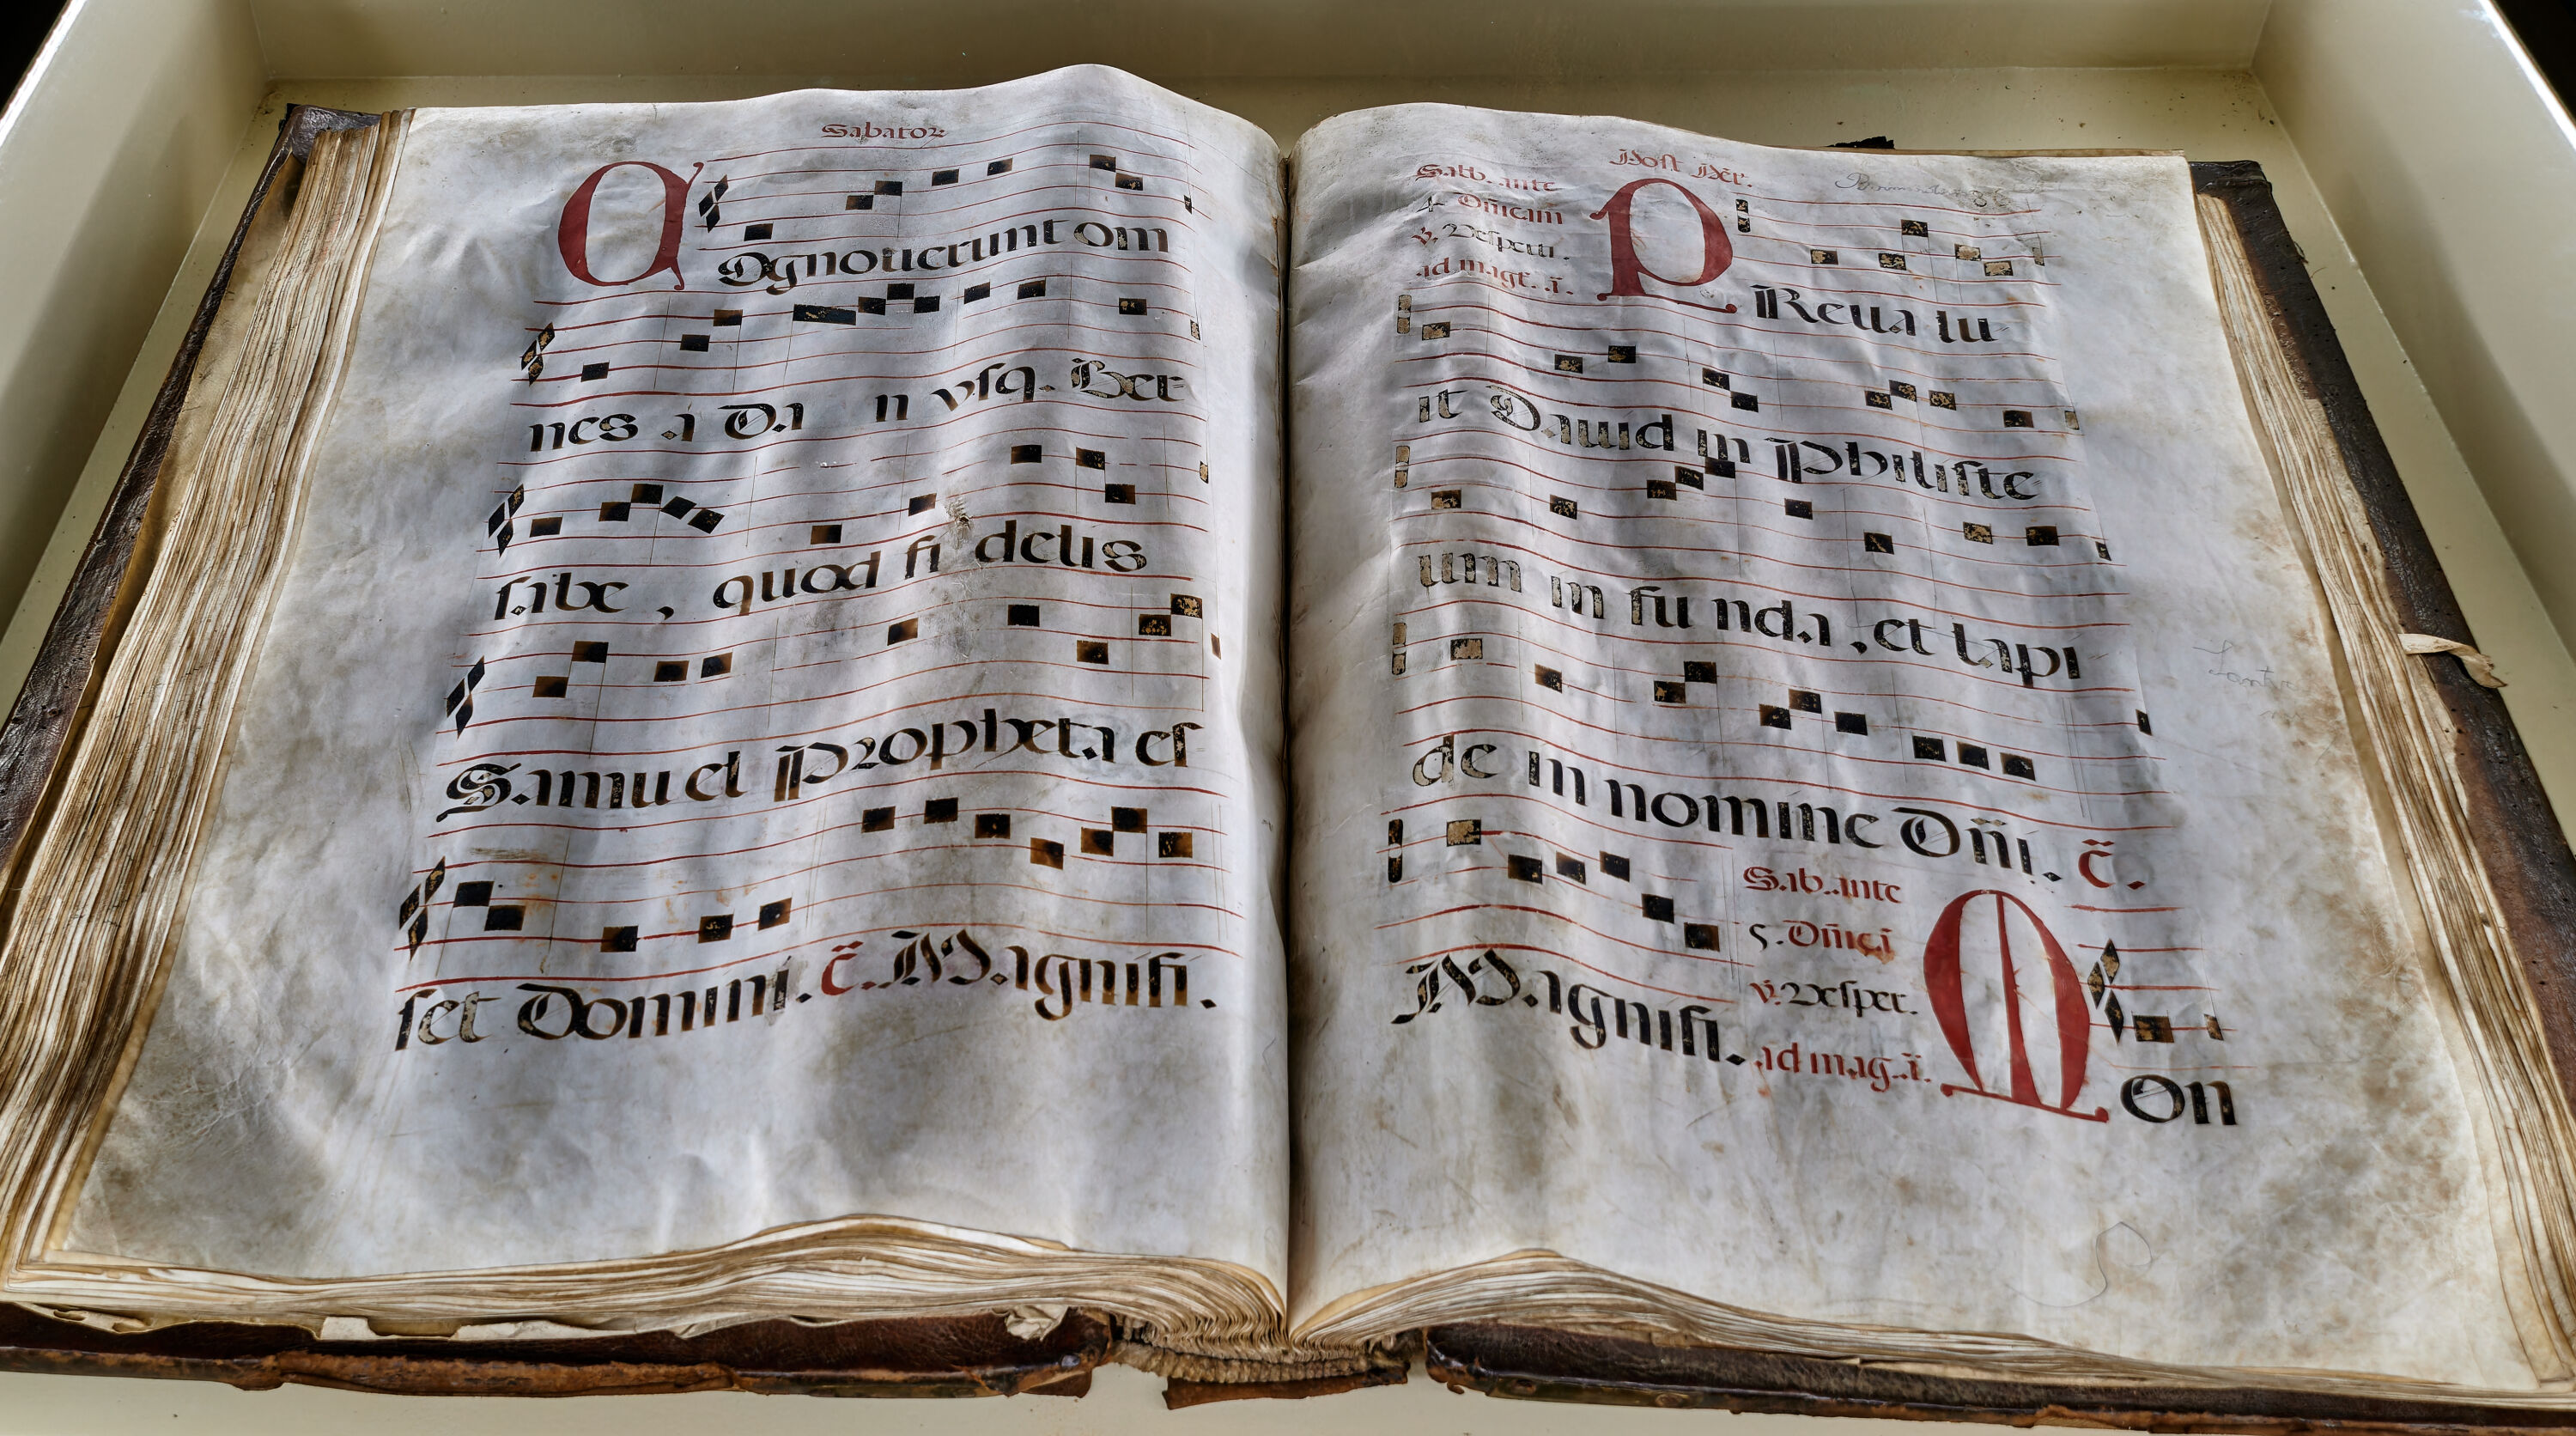 Sabator
C Ognouerunt om
nes a Da n vsq. Ber
sabe, quod fi delis
Samu el Propheta es
set Domini. c̄. Magnifi.
Post Pēt.
Sabb. ante
4 Dn̄icam
v̇. Vesperu.
ad magt. .ī.
P Reua lu
it Dauid in Philiste
um in fu nda, et lapi
de in nomine Dn̄i. c̄.
Magnifi.
Sab. ante
5. Dn̄icā
v̇. Vesper.
ad mag. .ī.
M on